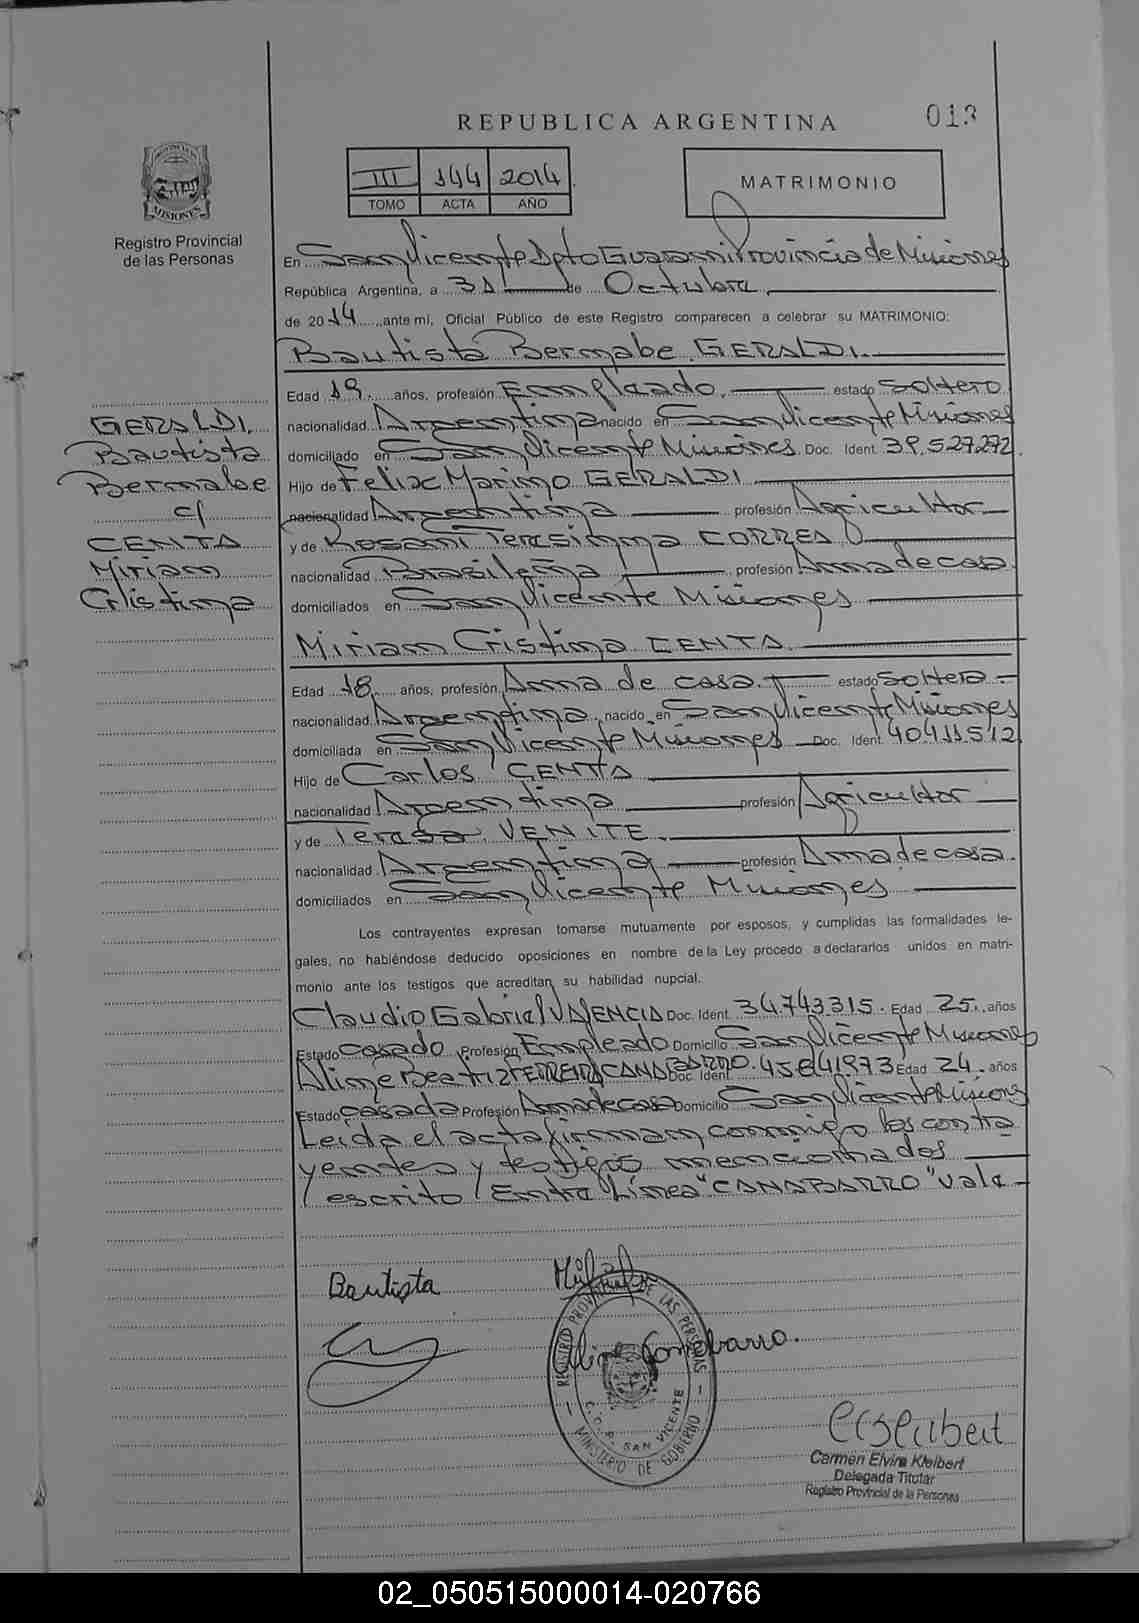 REPUBLICA ARGENTINA
013
III 144 2014
TOMO ACTA AÑO
MATRIMONIO
PROVINCIA DE
MISIONES
Registro Provincial
de las Personas
En San Vicente Dpto Guarani Provincia de Misiones
República Argentina, a 31 de Octubre
de 2014 ,ante mí, Oficial Público de este Registro comparecen a celebrar su MATRIMONIO:
Bautista Bernabe GERALDI.
Edad 19 años, profesión Empleado, estado Soltero
nacionalidad Argentina nacido en San Vicente Misiones
domiciliado en San Vicente Misiones. Doc. Ident. 39.527.272.
Hijo de Felix Marino GERALDI
nacionalidad Argentina profesión Agricultor
y de Rosani Teresinha CORREA
nacionalidad Brasileña profesión Ama de casa.
domiciliados en San Vicente Misiones
GERALDI,
Bautista
Bernabe
c/
CENTA
Miriam
Cristina
Miriam Cristina CENTA
Edad 18 años, profesión Ama de casa. estado Soltera
nacionalidad Argentina, nacido en San Vicente Misiones
domiciliada en San Vicente Misiones Doc. Ident. 40411512
Hijo de Carlos CENTA
nacionalidad Argentina profesión Agricultor
y de Teresa VENITE.
nacionalidad Argentina profesión Ama de casa.
domiciliados en San Vicente Misiones
Los contrayentes expresan tomarse mutuamente por esposos, y cumplidas las formalidades le-
gales, no habiéndose deducido oposiciones en nombre de la Ley procedo a declararlos unidos en matri-
monio ante los testigos que acreditan su habilidad nupcial.
Claudio Gabriel VALENCIA Doc. Ident. 34.743.315. Edad 25. años
Estado casado Profesión Empleado Domicilio San Vicente Misiones
Aline Beatriz FERREIRA CANABARRO. Doc. Ident. Edad 24. años
Estado casada Profesión Ama de casa Domicilio San Vicente Misiones
Leída el acta firman conmigo los contra
yentes y testigos mencionados
escrito/Entre línea "CANABARRO" Vale
Bautista
Aline Canabarro.
REGISTRO PROVINCIAL DE LAS PERSONAS
SAN VICENTE
MINISTERIO DE GOBIERNO
Carmen Elvira Kleibert
Delegada Titular
Registro Provincial de la Personas
02_050515000014-020766